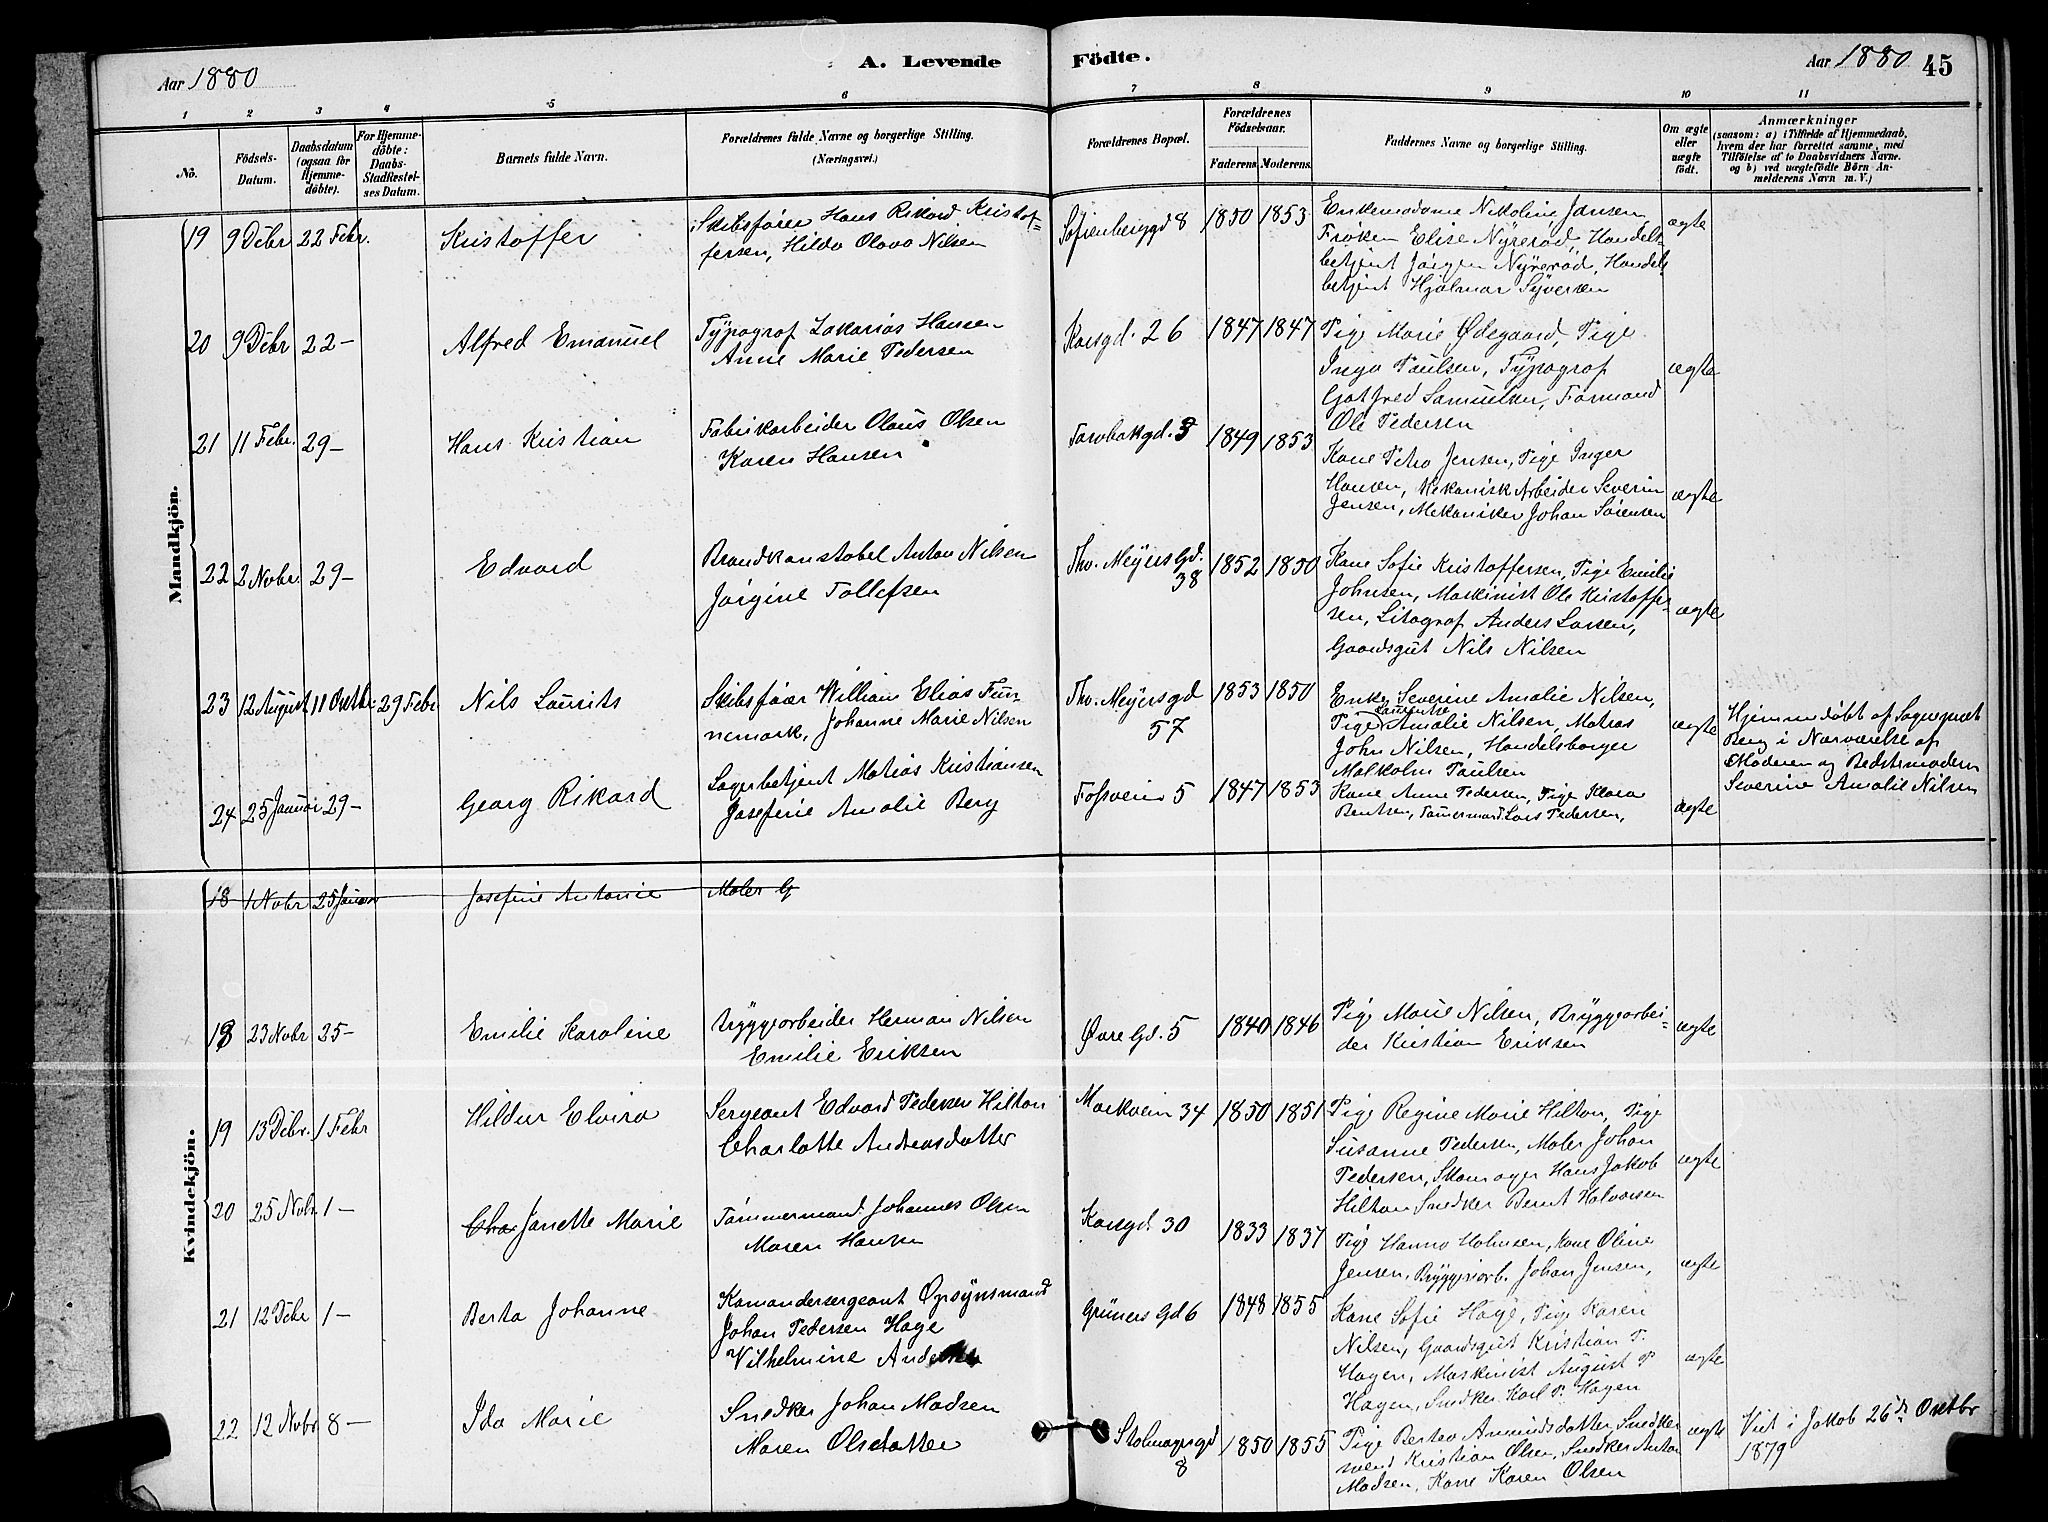 Aar 1880
A. Levende Födte.
Aar 1880 45
1 2 3 4 5 6 7 8 9 10 11
No.
Födsels-Datum.
Daabsdatum (ogsaa for Hjemmedöbte).
For Hjemmedöbte: Daabs-Stadfæstelses Datum.
Barnets fulde Navn.
Forældrenes fulde Navne og borgerlige Stilling. (Næringsvei.)
Forældrenes Bopæl.
Forældrenes Födselsaar.
Faderens. Moderens.
Faddernes Navne og borgerlige Stilling.
Om ægte eller uægte födt.
Anmærkninger
(saasom: a) i Tilfælde af Hjemmedaab, hvem der har forrettet samme, med Tilföielse af to Daabsvidners Navne. og b) ved uægtefödte Börn Anmelderens Navn m. V.)
Mandkjön.
19 9 Debr 22 Febr. Kristoffer
Skibsfører Hans Rikard Kristof-
fersen, Hilda Olava Nilsen
Sofienberggd 8 1850 1853
Enkemadame Nikoline Jansen,
Frøken Elise Nyrerød, Handels-
betjent Jørgen Nyrerød, Handels
betjent Hjalmar Syversen
ægte
20 9 Debr 22 - Alfred Emanuel
Typograf Zakarias Hansen
Anne Marie Pedersen
Korsgd. 26 1847 1847
Pige Marie Ødegaard, Pige
Inga Paulsen, Typograf
Gotfred Samuelsen, Formand
Ole Pedersen
ægte
21 11 Febr. 29 - Hans Kristian
Fabrikarbeider Olaus Olsen
Karen Hansen
Torvbakgd. 3 1849 1853
Kone Petra Jensen, Pige Inger
Hansen, Mekanisk Arbeider Severin
Jensen, Mekaniker Johan Sørensen
ægte
22 2 Novbr. 29 - Edvard
Brandkonstabel Anton Nilsen
Jørgine Tollefsen
Thv. Meyers Gd. 38 1852 1850
Kone Sofie Kristoffersen, Pige Emilie
Johnsen, Maskinist Ole Kristoffer-
sen, Litograf Anders Larsen,
Gaardsgut Nils Nilsen
ægte
23 12 August 11 Octbr 29 Febr Nils Laurits
Skibsfører William Elias Fun-
nemark, Johanne Marie Nilsen
Thv. Meyersgd 57 1853 1850
Enke Severine Amalie Nilsen,
Pige Laurentse Amalie Nilsen, Matros
John Nilsen, Handelsborger
Malkolm Paulsen
ægte
Hjemmedøbt af Sogneprest
Berg i Nærværelse af
Moderen og Bedstemoderen
Severine Amalie Nilsen
24 25 Januar 29 - Georg Rikard
Lagerbetjent Matias Kristiansen
Josefine Amalie Berg
Fossveien 5 1847 1853
Kone Anne Pedersen, Pige Klara
Bentsen, Tømermand Lars Pedersen,
ægte
Kvindekjön.
18 1 Novbr 25 Januar Josefine Antonie Maler G
18 23 Novbr 25 - Emilie Karoline
Bryggearbeider Herman Nilsen
Emilie Eriksen
Øvre Gd. 5 1840 1846
Pige Marie Nilsen, Bryggearbei-
der Kristian Eriksen
ægte
19 13 Debr. 1 Febr Hildur Elvira
Sergeant Edvard Pedersen Hilton
Charlotte Andreasdatter
Markveien 34 1850 1851
Pige Regine Marie Hilton, Pige
Susanne Pedersen, Maler Johan
Pedersen, Skomager Hans Jakob
Hilton Snedker Bernt Halvorsen
ægte
20 25 Novbr 1 - Cha Janette Marie
Tømmermand Johannes Olsen
Maren Hansen
Korsgd. 30 1833 1837
Pige Hanna Holmsen, Kone Oline
Jensen, Bryggeriarb. Johan Jensen,
ægte
21 12 Debr 1 - Berta Johanne
Komandersergeant Opsynsmand
Johan Pedersen Hage
Vilhelmine Andersen
Grüners Gd 6 1848 1855
Kone Sofie Hage, Pige Karen
Nilsen, Gaardsgut Kristian P.
Hagen, Maskinist August P
Hagen, Snedker Karl P. Hagen
ægte
22 12 Novbr 8 - Ida Marie
Snedker Johan Madsen
Maren Olsdatter
Stolmagergd 8 1850 1855
Pige Bertea Amundsdatter, Snedker
svend Kristian Olsen, Snedker Anton
Madsen, Kone Karen Olsen
ægte
Viet i Jakob 26de Octbr
1879